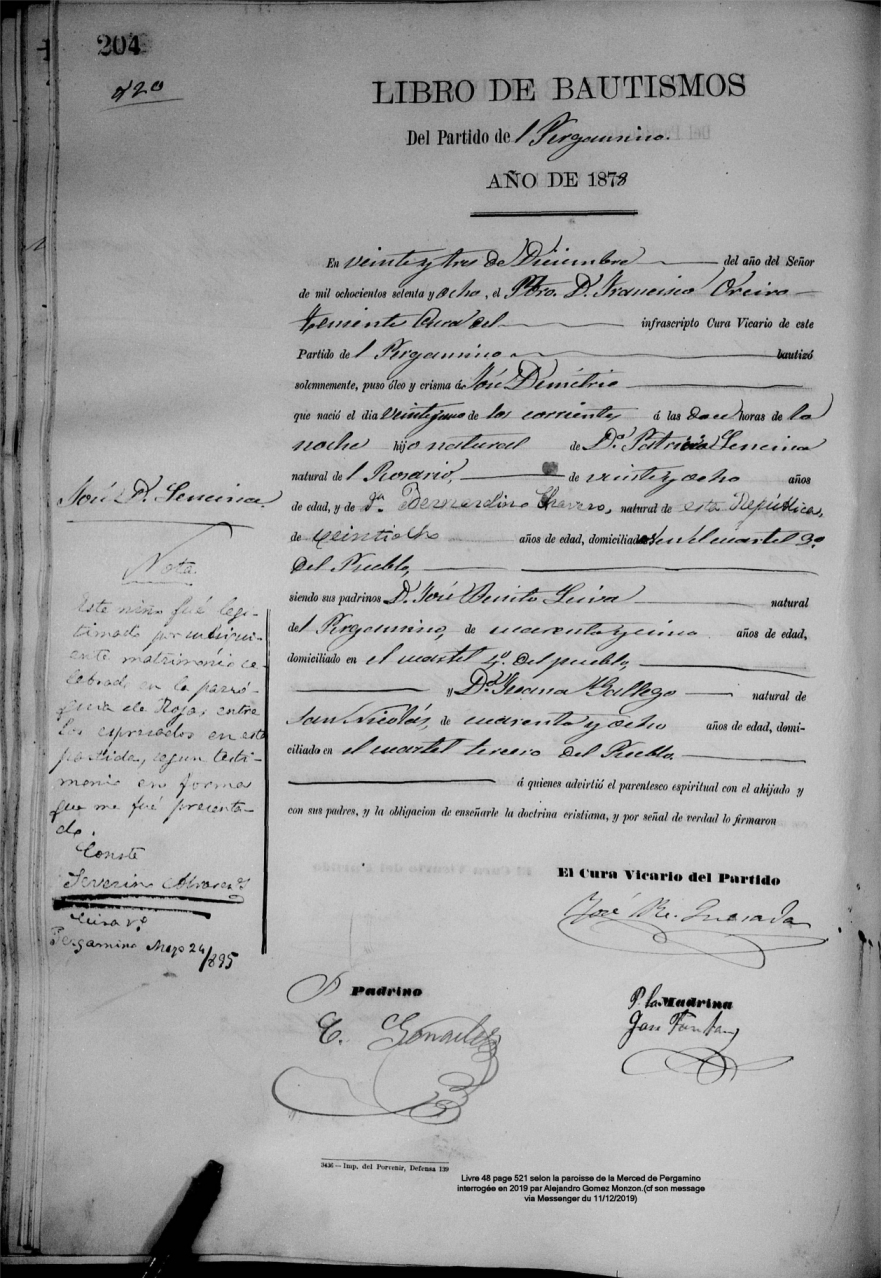 204
520
LIBRO DE BAUTISMOS
Del Partido del Pergamino.
AÑO DE 1878
En veinte y tres de Diciembre del año del Señor
de mil ochocientos setenta y ocho, el Pbro. D. Francisco Oreiro
Teniente Cura del infrascripto Cura Vicario de este
Partido del Pergamino bautizó
solemnemente, puso óleo y crisma á José Demétrio
que nació el dia veinte y uno de los corrientes á las doce horas de la
noche hijo natural de Da. Patricia Lencina
natural del Rosario, de veinte y ocho años
de edad, y de Bernardino Chavero, natural de esta República,
de veintiocho años de edad, domiciliados en el cuartel 3o
del Pueblo,
siendo sus padrinos D. José Benito Leiva natural
del Pergamino, de cuarenta y cinco años de edad,
domiciliado en el cuartel del pueblo,
y Da. Juana Gallego natural de
San Nicolás, de cuarenta y ocho años de edad, domi-
ciliado en el cuartel tercero del Pueblo
á quienes advirtió el parentesco espiritual con el ahijado y
con sus padres, y la obligacion de enseñarle la doctrina cristiana, y por señal de verdad lo firmaron
José D. Lencina.
Nota.
Este niño fué legi-
timado por subsigui-
ente matrimonio ce-
lebrado en la parró-
quia de Rojas entre
los expresados en esta
partida, segun testi-
monio en forma
que me fué presenta-
do.
Conste
Severino Alvarez
Cura Vo.
Pergamino Mayo 24/895
El Cura Vicario del Partido
José Quesada
P Padrino
C. Gonzalez
P. la Madrina
3436 — Imp. del Porvenir, Defensa 139
Livre 48 page 521 selon la paroisse de la Merced de Pergamino
interrogée en 2019 par Alejandro Gomez Monzon.(cf son message
via Messenger du 11/12/2019)